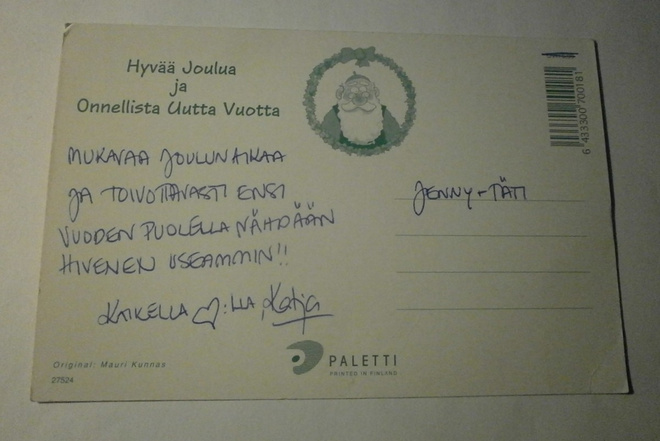 Hyvää Joulua
ja
Onnellista Uutta Vuotta
MUKAVAA JOULUNAIKAA
JA TOIVOTTAVASTI ENSI
VUODEN PUOLELLA NÄHDÄÄN
HIVENEN USEAMMIN!!
KAIKELLA ♡:LLA, Katja
JENNY + TÄTI
6 433300 700181
Original: Mauri Kunnas
27524
PALETTI
PRINTED IN FINLAND